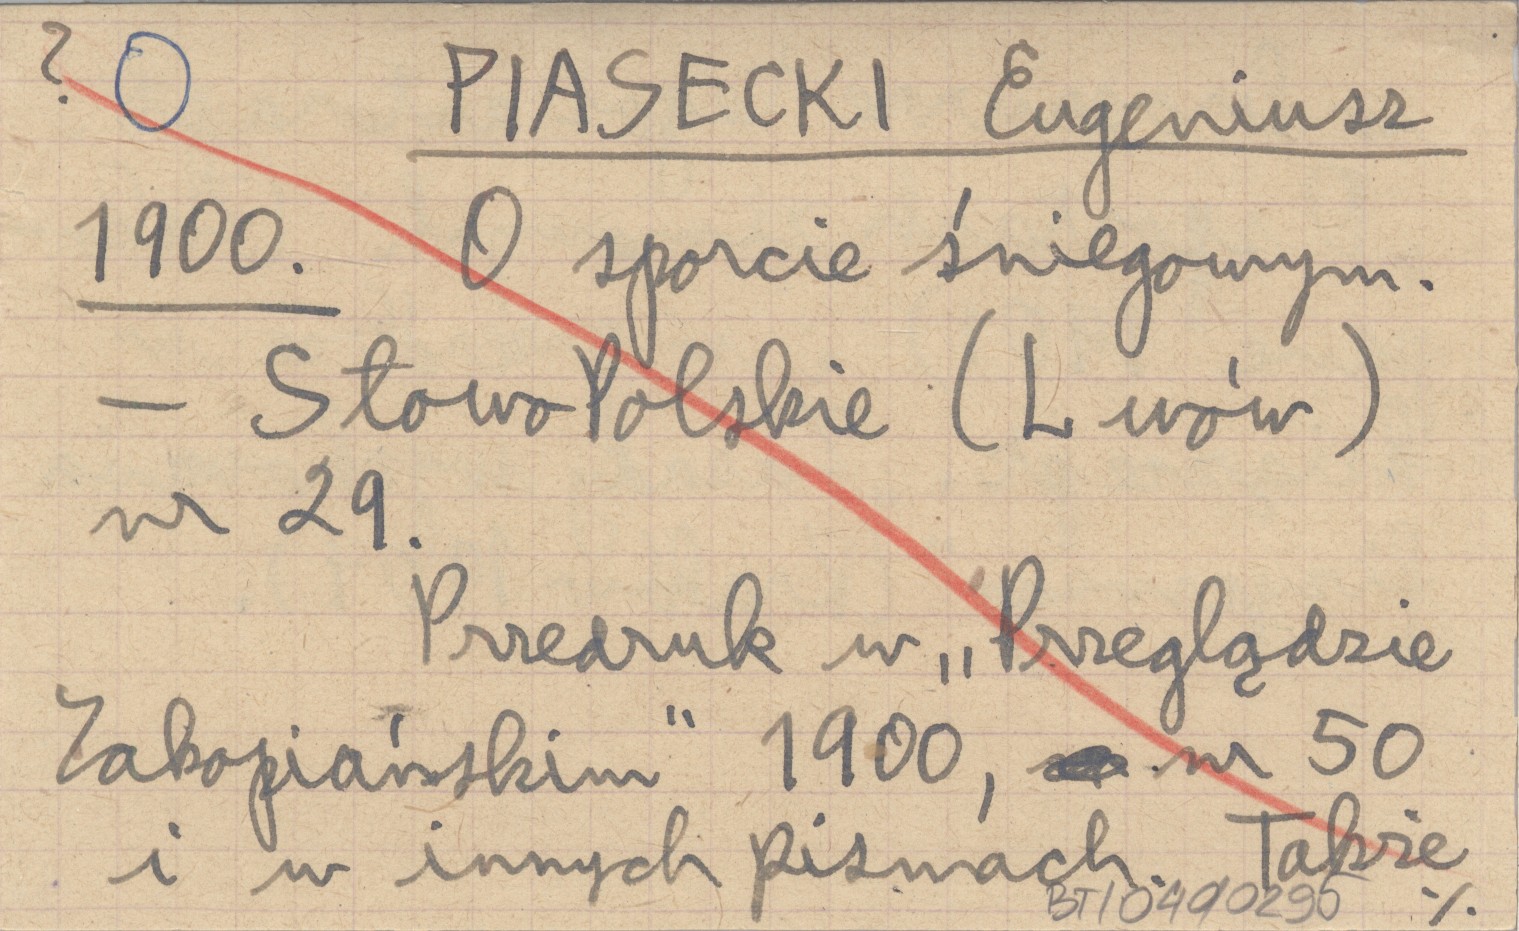 ? O PIASECKI Eugeniusz
1900. O sporcie śniegowym.
— Słowo Polskie (Lwów)
nr 29.
Przedruk w „Przeglądzie
Zakopiańskim" 1900, nr 50
i w innych pismach. Także
BT/049/0295 ./.